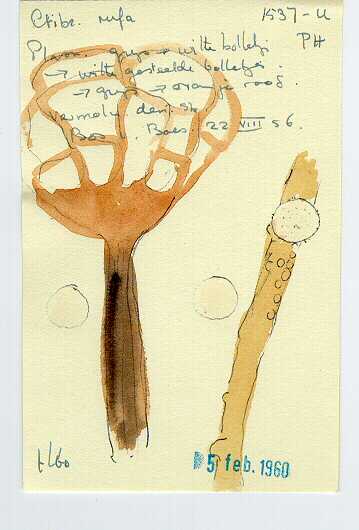 Cribr. rufa 1537-U
Plasm. grijs → witte bolletje PH
→ witte gesteelde bolletjes.
→ grijs → oranje rood.
vermolmd denn. st
Bos. Baes. 22 VIII 56.
1/60
5 feb. 1960